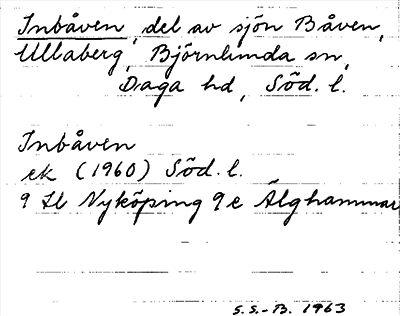 Inbåven, del av sjön Båven,
Ullaberg, Björnlunda sn,
Daga hd, Söd. l.
Inbåven
ek (1960) Söd. l.
9 Sl Nyköping 9e Älghammar
S.S.-B. 1963